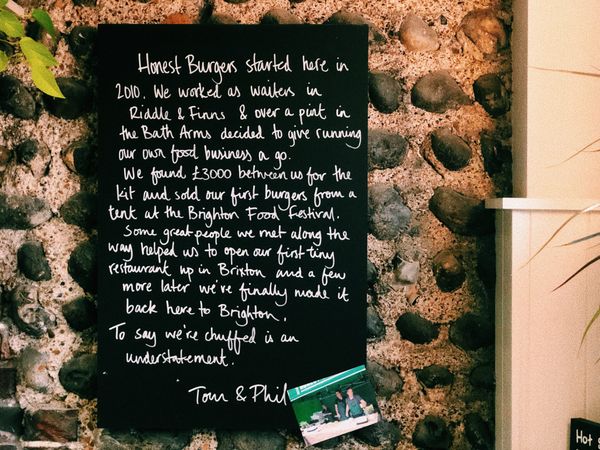 Honest Burgers started here in
2010. We worked as waiters in
Riddle & Finns & over a pint in
the Bath Arms decided to give running
our own food business a go.
We found £3000 between us for the
kit and sold our first burgers from a
tent at the Brighton Food Festival.
Some great people we met along the
way helped us to open our first tiny
restaurant up in Brixton and a few
more later we've finally made it
back here to Brighton.
To say we're chuffed is an
understatement.
Tom & Phil
Hot